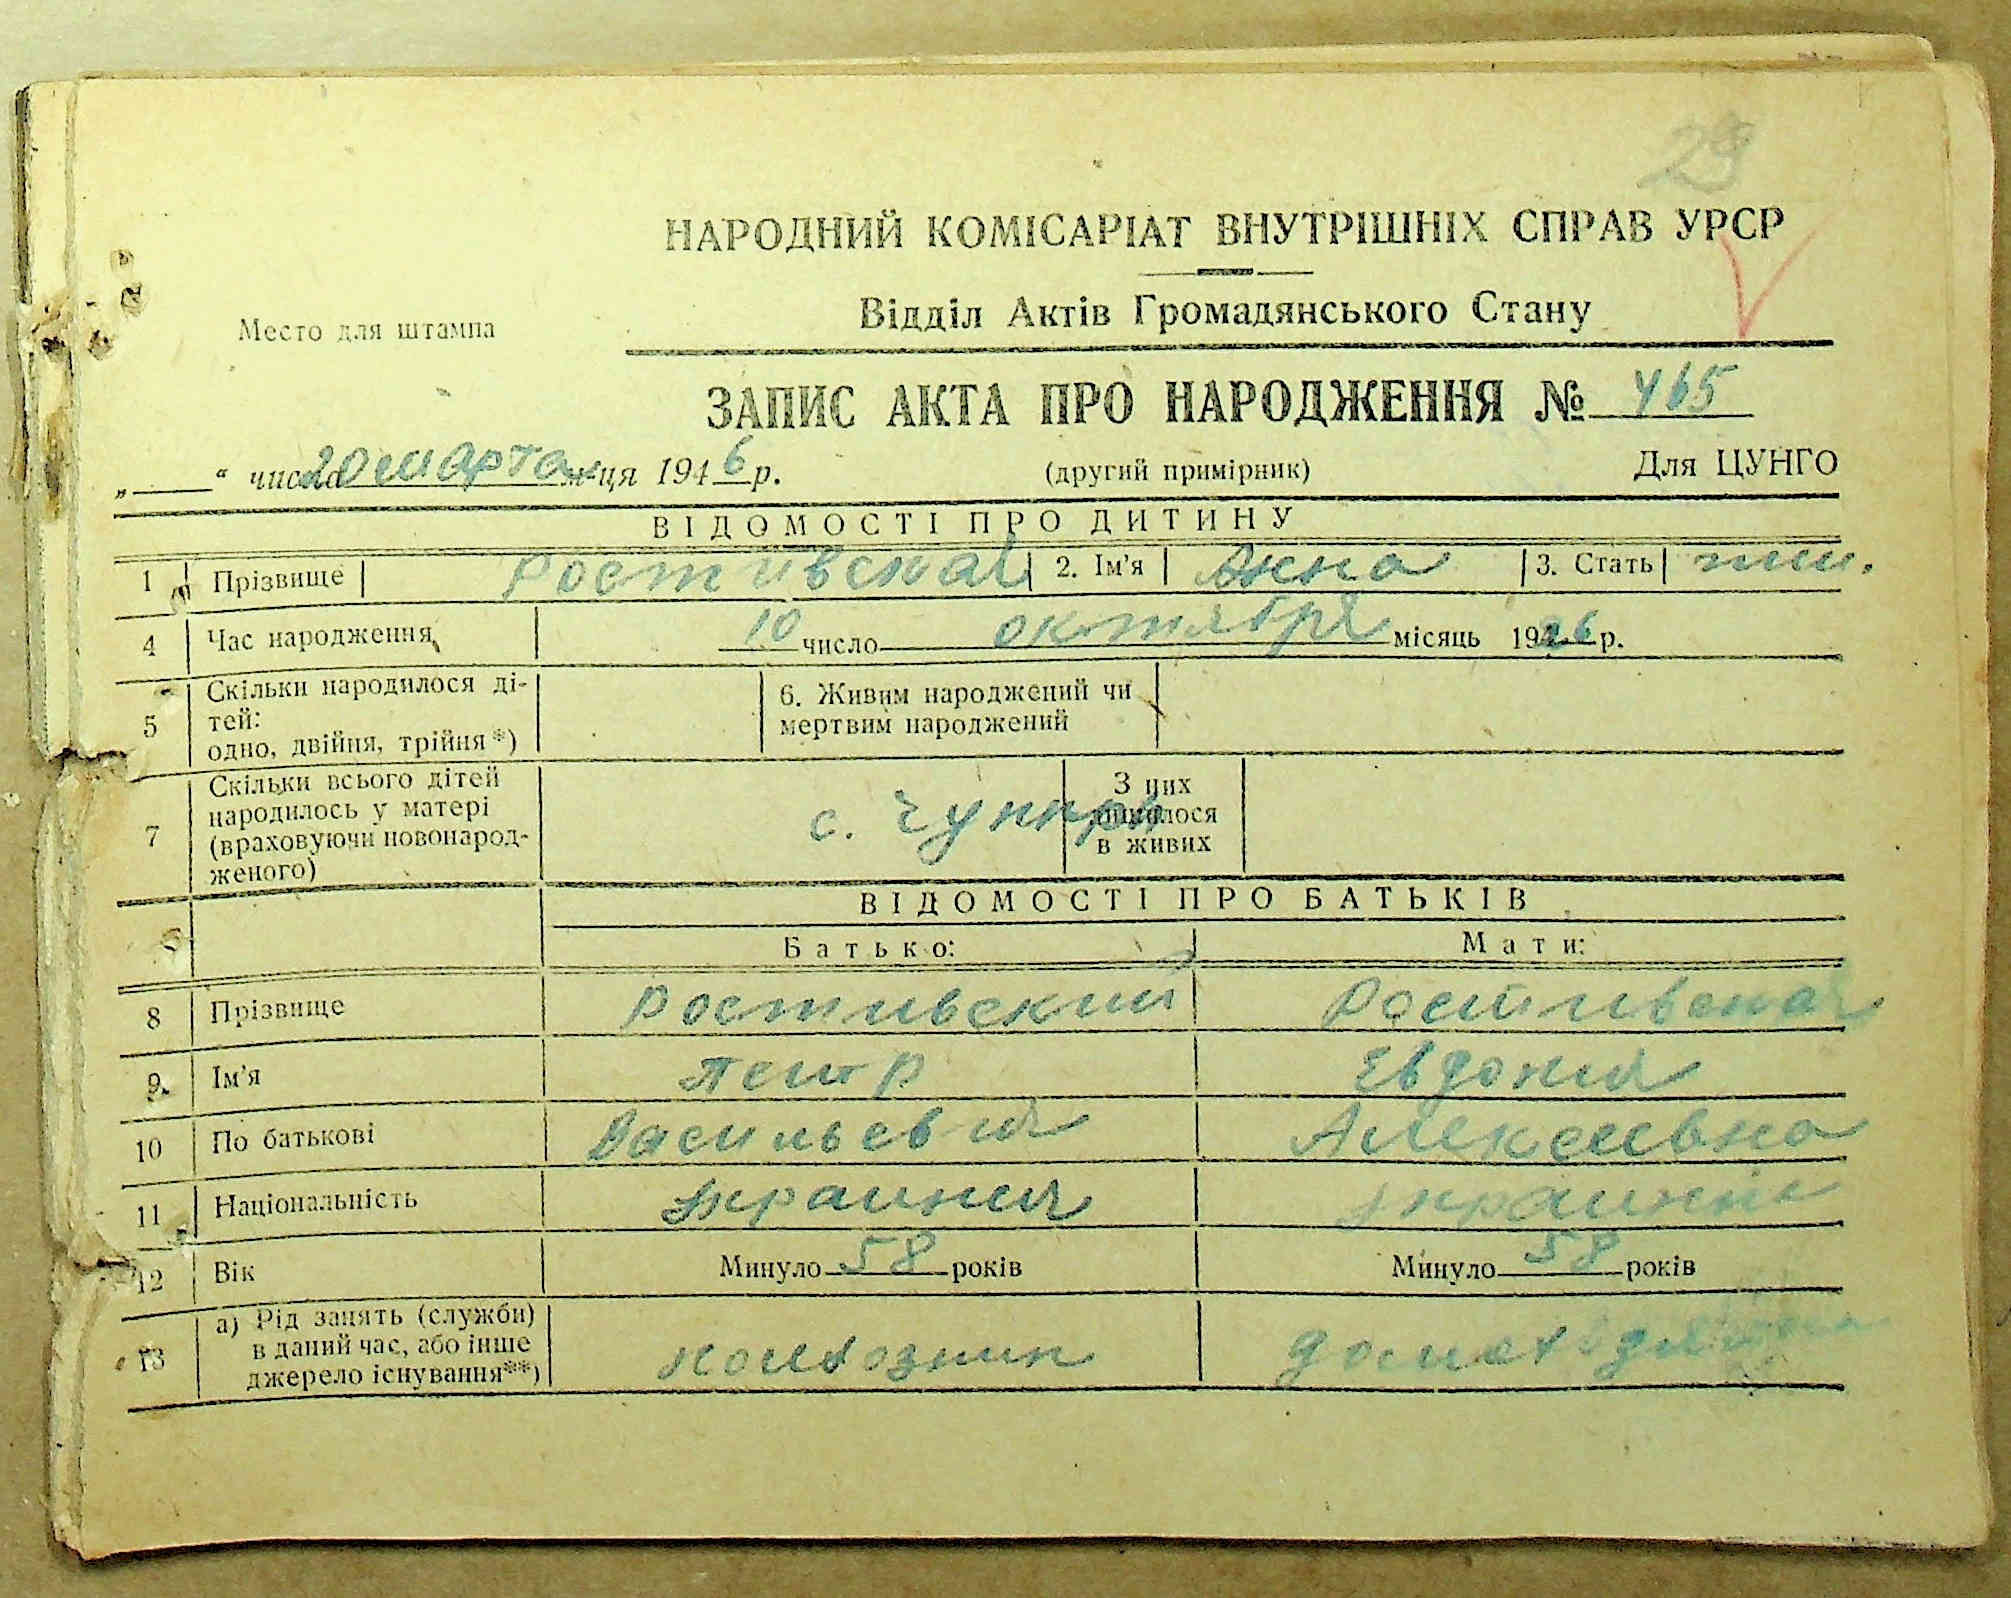 29
НАРОДНИЙ КОМІСАРІАТ ВНУТРІШНІХ СПРАВ УРСР
Відділ Актів Громадянського Стану
Место для штампа
ЗАПИС АКТА ПРО НАРОДЖЕННЯ № 465
„ “ числа 20 марта м-ця 1946 р. (другий примірник) Для ЦУНГО
ВІДОМОСТІ ПРО ДИТИНУ
1 Прізвище Ростивская 2. Ім’я Анна 3. Стать
4 Час народження 10 число октября місяць 1926 р.
5 Скільки народилося ді-
тей:
одно, двійня, трійня*)
6. Живим народжений чи
мертвим народжений
7 Скільки всього дітей
народилось у матері
(враховуючи новонарод-
женого)
с.
З них
лишилося
в живих
ВІДОМОСТІ ПРО БАТЬКІВ
Батько: Мати:
8 Прізвище Ростивский Ростивская
9. Ім’я Петр Евдокия
10 По батькові Васильевич Алексеевна
11 Національність
12 Вік Минуло 58 років Минуло 58 років
13 а) Рід занять (служби)
в даний час, або інше
джерело існування**)
колхозник